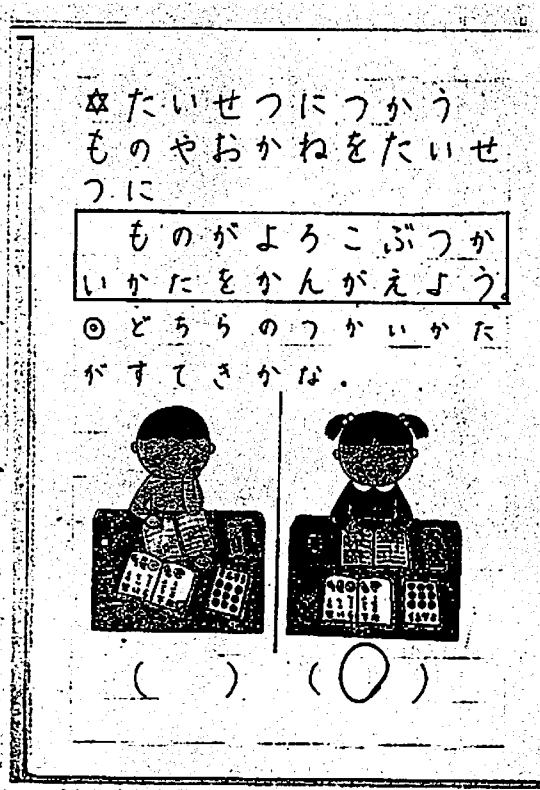 ✡たいせつにつかう
ものやおかねをたいせ
つに
ものがよろこぶつか
いかたをかんがえよう。
◎どちらのつかいかた
がすてきかな.
( ) (○)